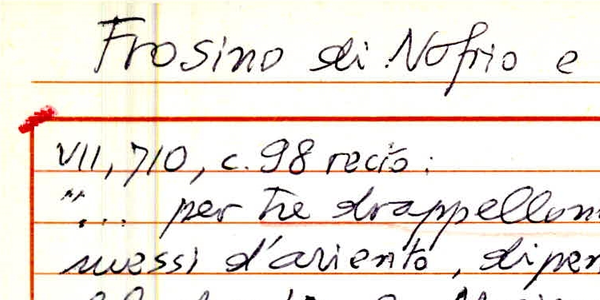 Frosino di Nofrio e
VII, 710, c. 98 recto:
"... per tre drappellon
messi d'ariento, dipen